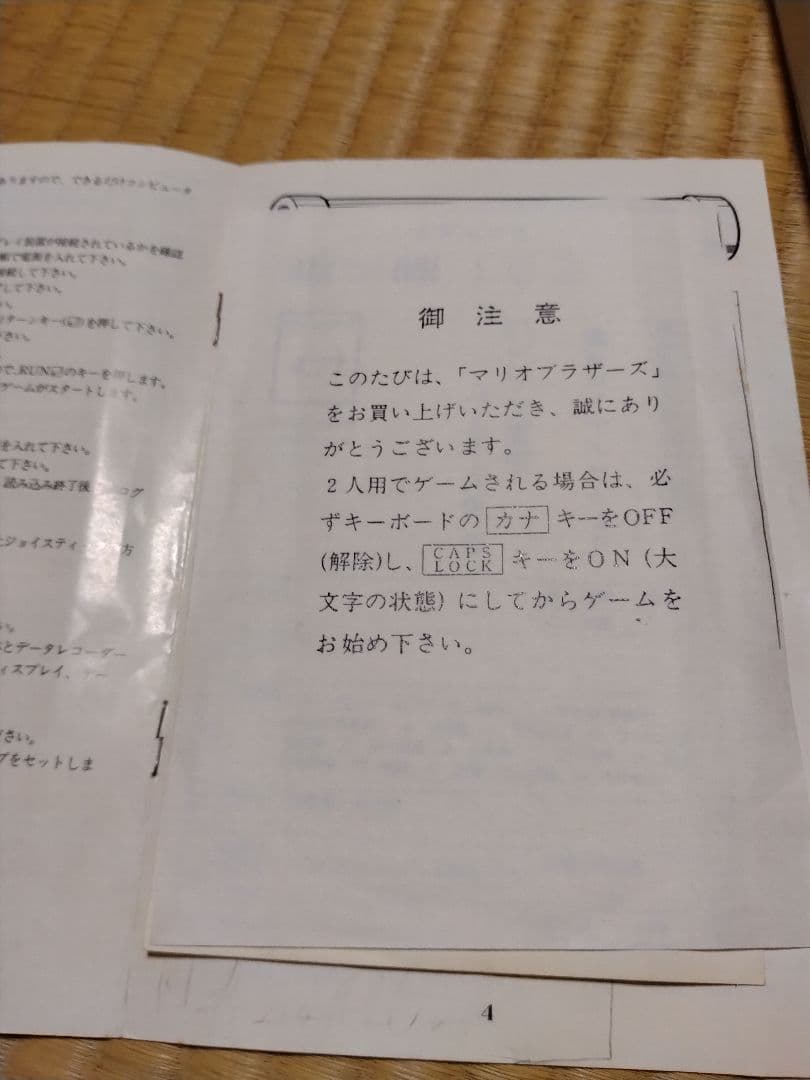 ありますので、できるだけコンピュータ
プレイ装置が接続されているかを確認
電源を入れて下さい。
接続して下さい。
して下さい。
ターンキー(⏎)を押して下さい。
下さい。
で、RUN⏎のキーを押します。
ゲームがスタートします。
を入れて下さい。
て下さい。
読み込み終了後
ジョイスティ
方
とデータレコーダー
ィスプレイ、
下さい。
プをセットしま
御注意
このたびは、「マリオブラザーズ」
をお買い上げいただき、誠にあり
がとうございます。
2人用でゲームされる場合は、必
ずキーボードのカナキーをOFF
(解除)し、CAPS LOCKキーをON(大
文字の状態)にしてからゲームを
お始め下さい。
4